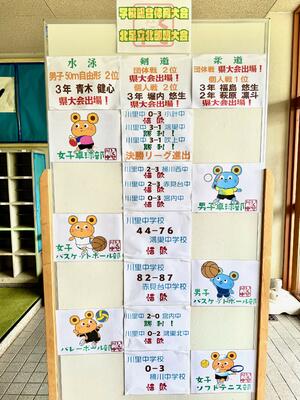 学校総合体育大会
北足立北部県大会
水泳
男子50m自由形 2位
県大会出場！
3年 青木 健心
県大会出場！
剣道
団体戦 2位
県大会出場！
個人戦 2位
3年 堀内 悠生
県大会出場！
柔道
団体戦 2位
県大会出場！
個人戦 2位
3年 福島 悠生
2年 萩原 凛斗
県大会出場！
女子卓球部
川里中 0-3 小針中
惜敗
川里中 3-1 鴻巣中
川里中 3-1 吹上中
勝利！
決勝リーグ進出
川里中 2-3 桶川西中
惜敗
川里中 2-3 赤見台中
惜敗
川里中 0-3 宮内中
惜敗
男子卓球部
女子
バスケットボール部
川里中学校
44-76
鴻巣中学校
惜敗
川里中学校
82-87
赤見台中学校
惜敗
男子
バスケットボール部
バレーボール部
川里中 2-0 宮内中
勝利！
川里中 0-2 鴻巣北中
惜敗
川里中学校
0-3
桶川中学校
惜敗
女子
ソフトテニス部